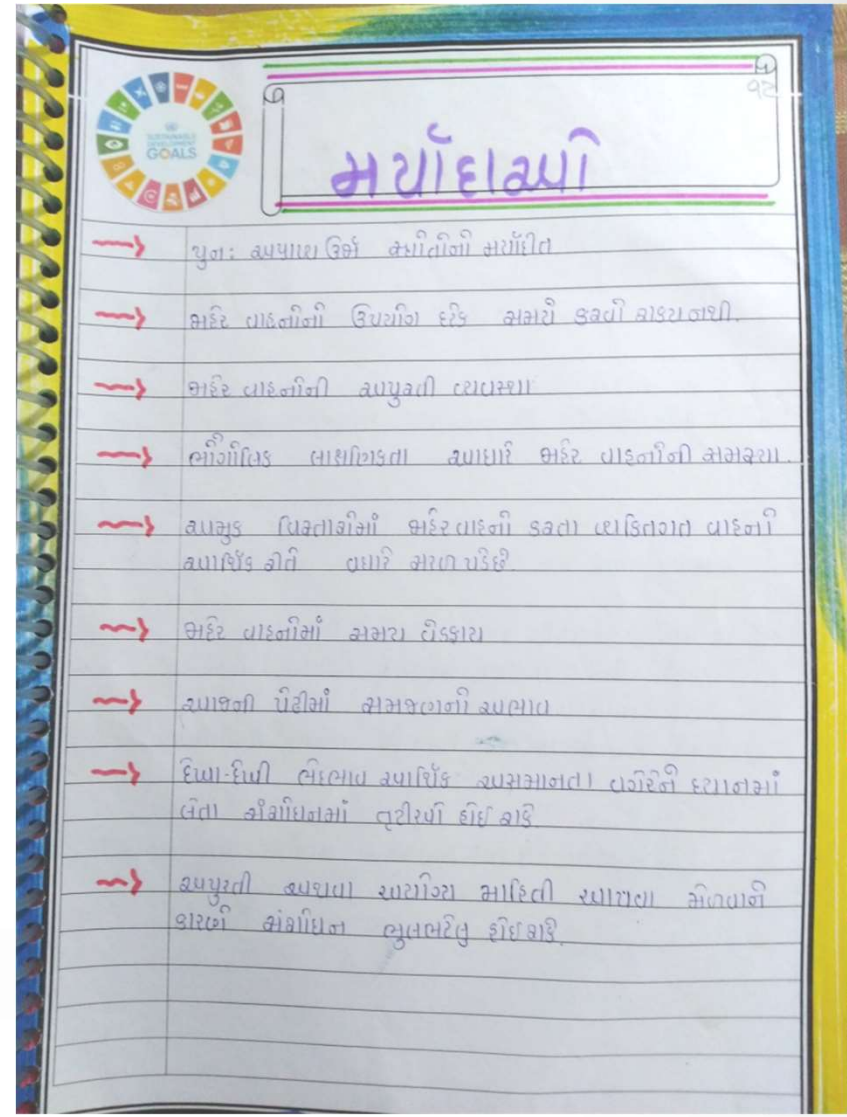 SUSTAINABLE
DEVELOPMENT
GOALS
૧૮
મર્યાદાઓ
પુનઃ અપ્રાપ્ય ઉર્જા સ્ત્રોતોની મર્યાદીત
જાહેર વાહનોનો ઉપયોગ દરેક સમયે કરવો શક્ય નથી.
જાહેર વાહનોની અપુરતી વ્યવસ્થા
ભૌગોલિક લાક્ષણિકતા આધારે જાહેર વાહનોની સમસ્યા.
અમુક વિસ્તારોમાં જાહેર વાહનો કરતા વ્યકિતગત વાહનો
આર્થિક રીતે વધારે સરળ પડે છે.
જાહેર વાહનોમાં સમય વેડફાય
આજની પેઢીમાં સમજણનો અભાવ
દેખા-દેખી ભેદભાવ આર્થિક અસમાનતા વગેરેને ધ્યાનમાં
લેતા સંશોધનમાં ત્રુટીઓ હોઈ શકે.
અપુરતી અથવા અયોગ્ય માહિતી આપવા મેળવાને
કારણે સંશોધન ભુલભરેલુ હોઈ શકે.